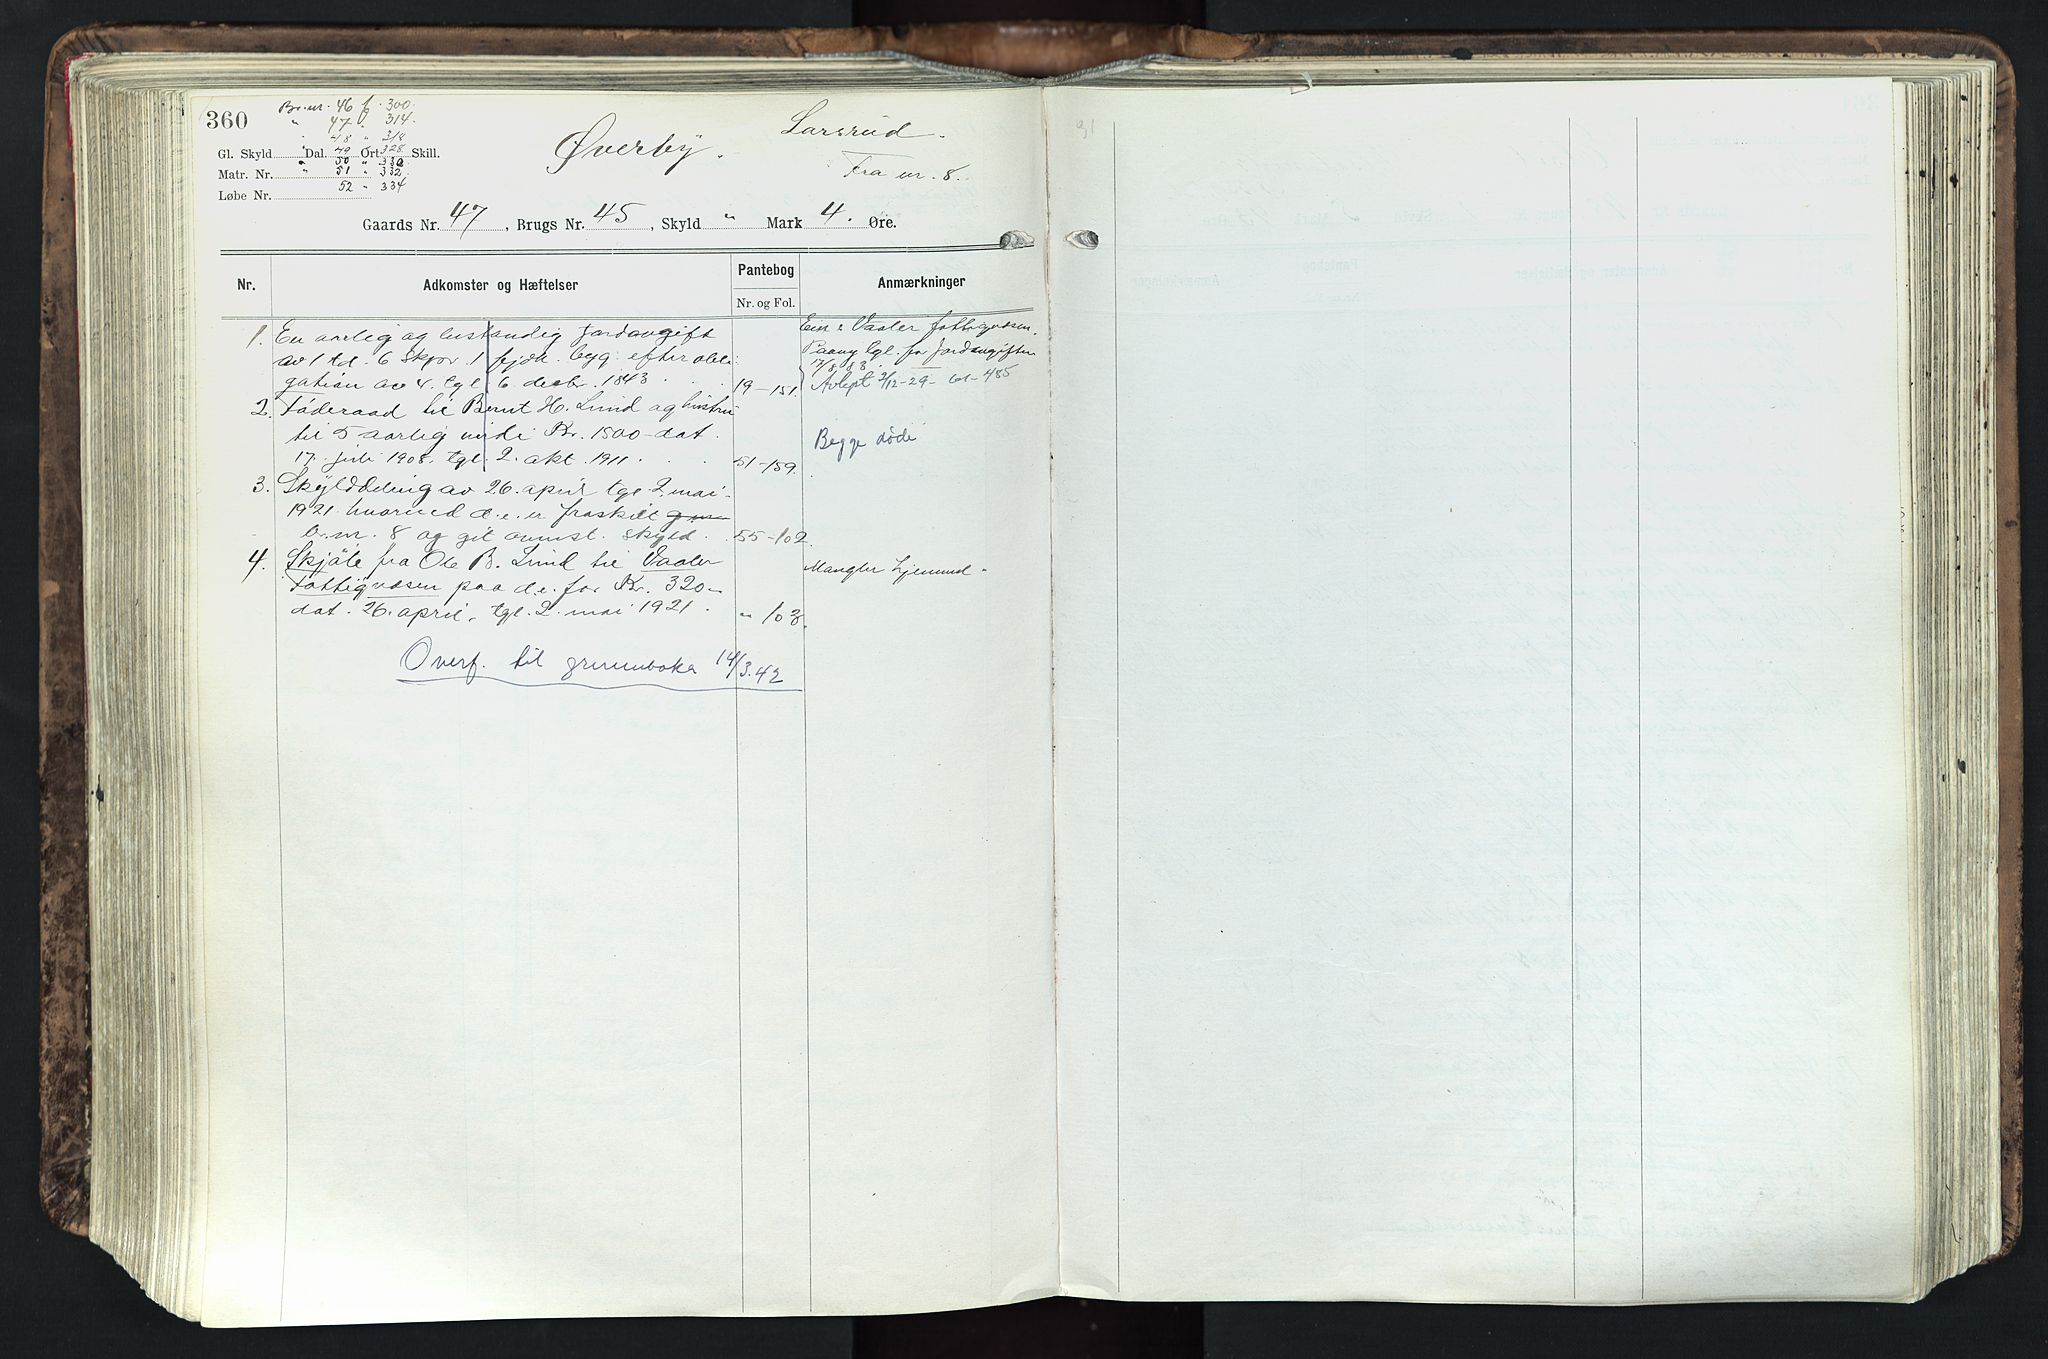 360
Br.nr. 46 f. 300.
" 47 " 314.
" 48 " 318
Gl. Skyld " Dal. 49 Ort " 328 Skill.
" 50 " 330
Matr. Nr. " 51 " 332
Løbe Nr. 52 " 334
Øverby.
Larsrud.
Fra nr. 8.
Gaards Nr. 47, Brugs Nr. 45, Skyld " Mark 4. Øre.
Nr. Adkomster og Hæftelser Pantebog Anmærkninger
Nr. og Fol.
1. En aarlig og bestandig Jordavgift
av 1 td. 6 Skpr. 1 fjdk. byg efter obli-
gation av 4. tgl. 6 decbr. 1843 19-151.
Eier: Vaaler fattigvæsen.
tgl. for Jordavgiften
17/8 83.
Avløpt 2/12-29- 61-485
2. Føderaad til Bernt H. Lund og hustru
til 5 aarlig værdi Kr. 1500 dat.
17. juli 1908. tgl. 2. okt. 1911. 51-159.
Begge døde
3. Skylddeling av 26. april tgl. 2. mai
1921 hvorved d.e. er fraskilt
b.nr. 8 og git ovenst. skyld. 55-102.
4. Skjøte fra Ole B. Lund til Vaaler
Fattigvæsen paa d.e. for Kr. 320-
dat. 26. april, tgl. 2. mai 1921. " 103.
Mangler hjemmel.
Overf. til grunnboka 14/3.42